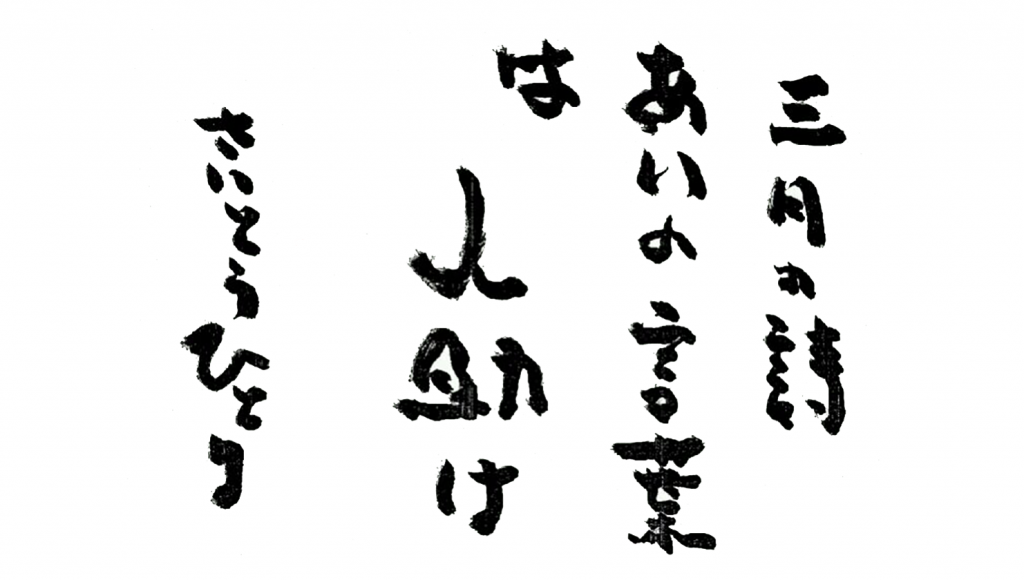 三月の詩
あいの言葉
は
人助け
さいとうひとり